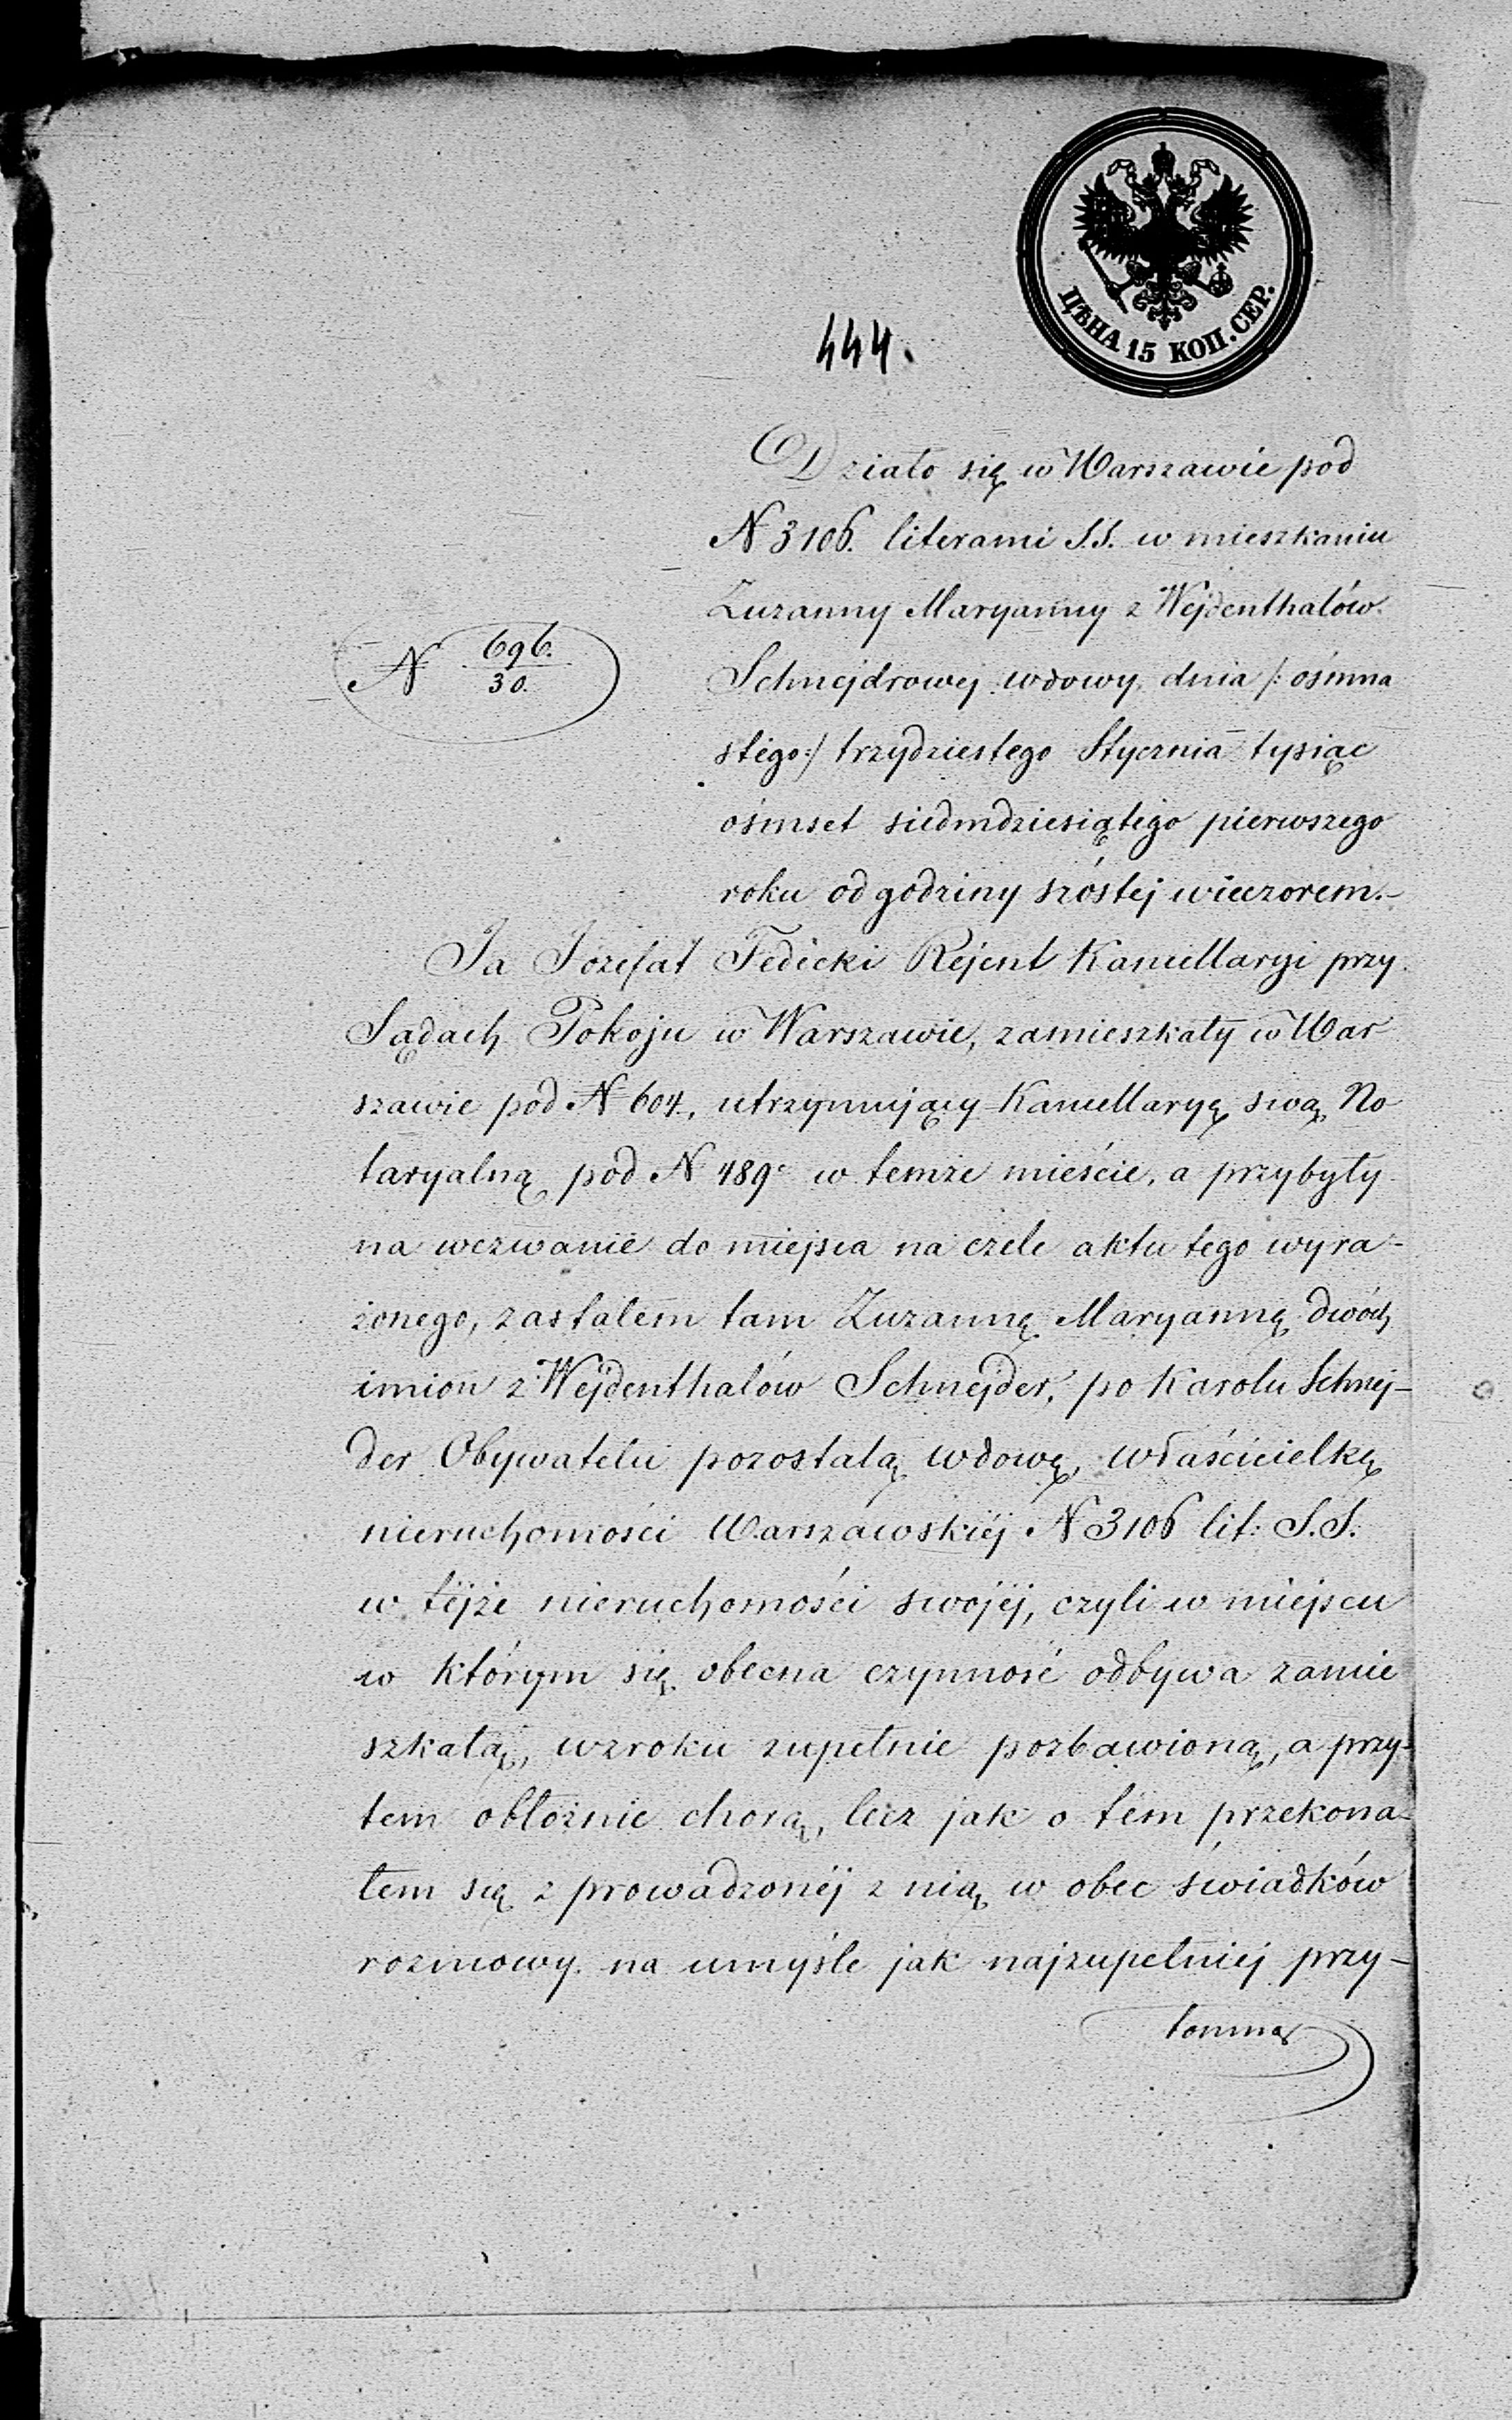 ЦѢНА 15 КОП. СЕР.
444.
Działo się w Warszawie pod
N 3106. literami S.S. w mieszkaniu
Zuzanny Maryanny z Wejdenthalów
N 696./30.
Schnejdrowej wdowy, dnia /: ośmna
stego:/ trzydziestego Stycznia tysiąc
ośmset siedmdziesiątego pierwszego
roku od godziny szóstej wieczorem.-
Ja Józefat Fedicki Rejent Kancellaryi przy
Sądach Pokoju w Warszawie, zamieszkały w War
szawie pod N 604, utrzymujący Kancellaryę swą No
taryalną pod N 489c w temże mieście, a przybyły
na wezwanie do miejsca na czele aktu tego wyra-
żonego, zastałem tam Zuzannę Maryannę dwóch
imion z Wejdenthalów Schnejder, po Karolu Schnej-
der Obywatelu pozostałą wdowę, właścicielkę
nieruchomości Warszawskiéj N 3106 lit: S.S.
w téjże nieruchomości swojéj, czyli w miejscu
w którym się obecna czynność odbywa zamie
szkałą, wzroku zupełnie pozbawioną, a przy-
tem obłożnie chorą, lecz jak o tem przekona-
łem się z prowadzonéj z nią w obec świadków
rozmowy na umyśle jak najzupełniej przy-
tomną